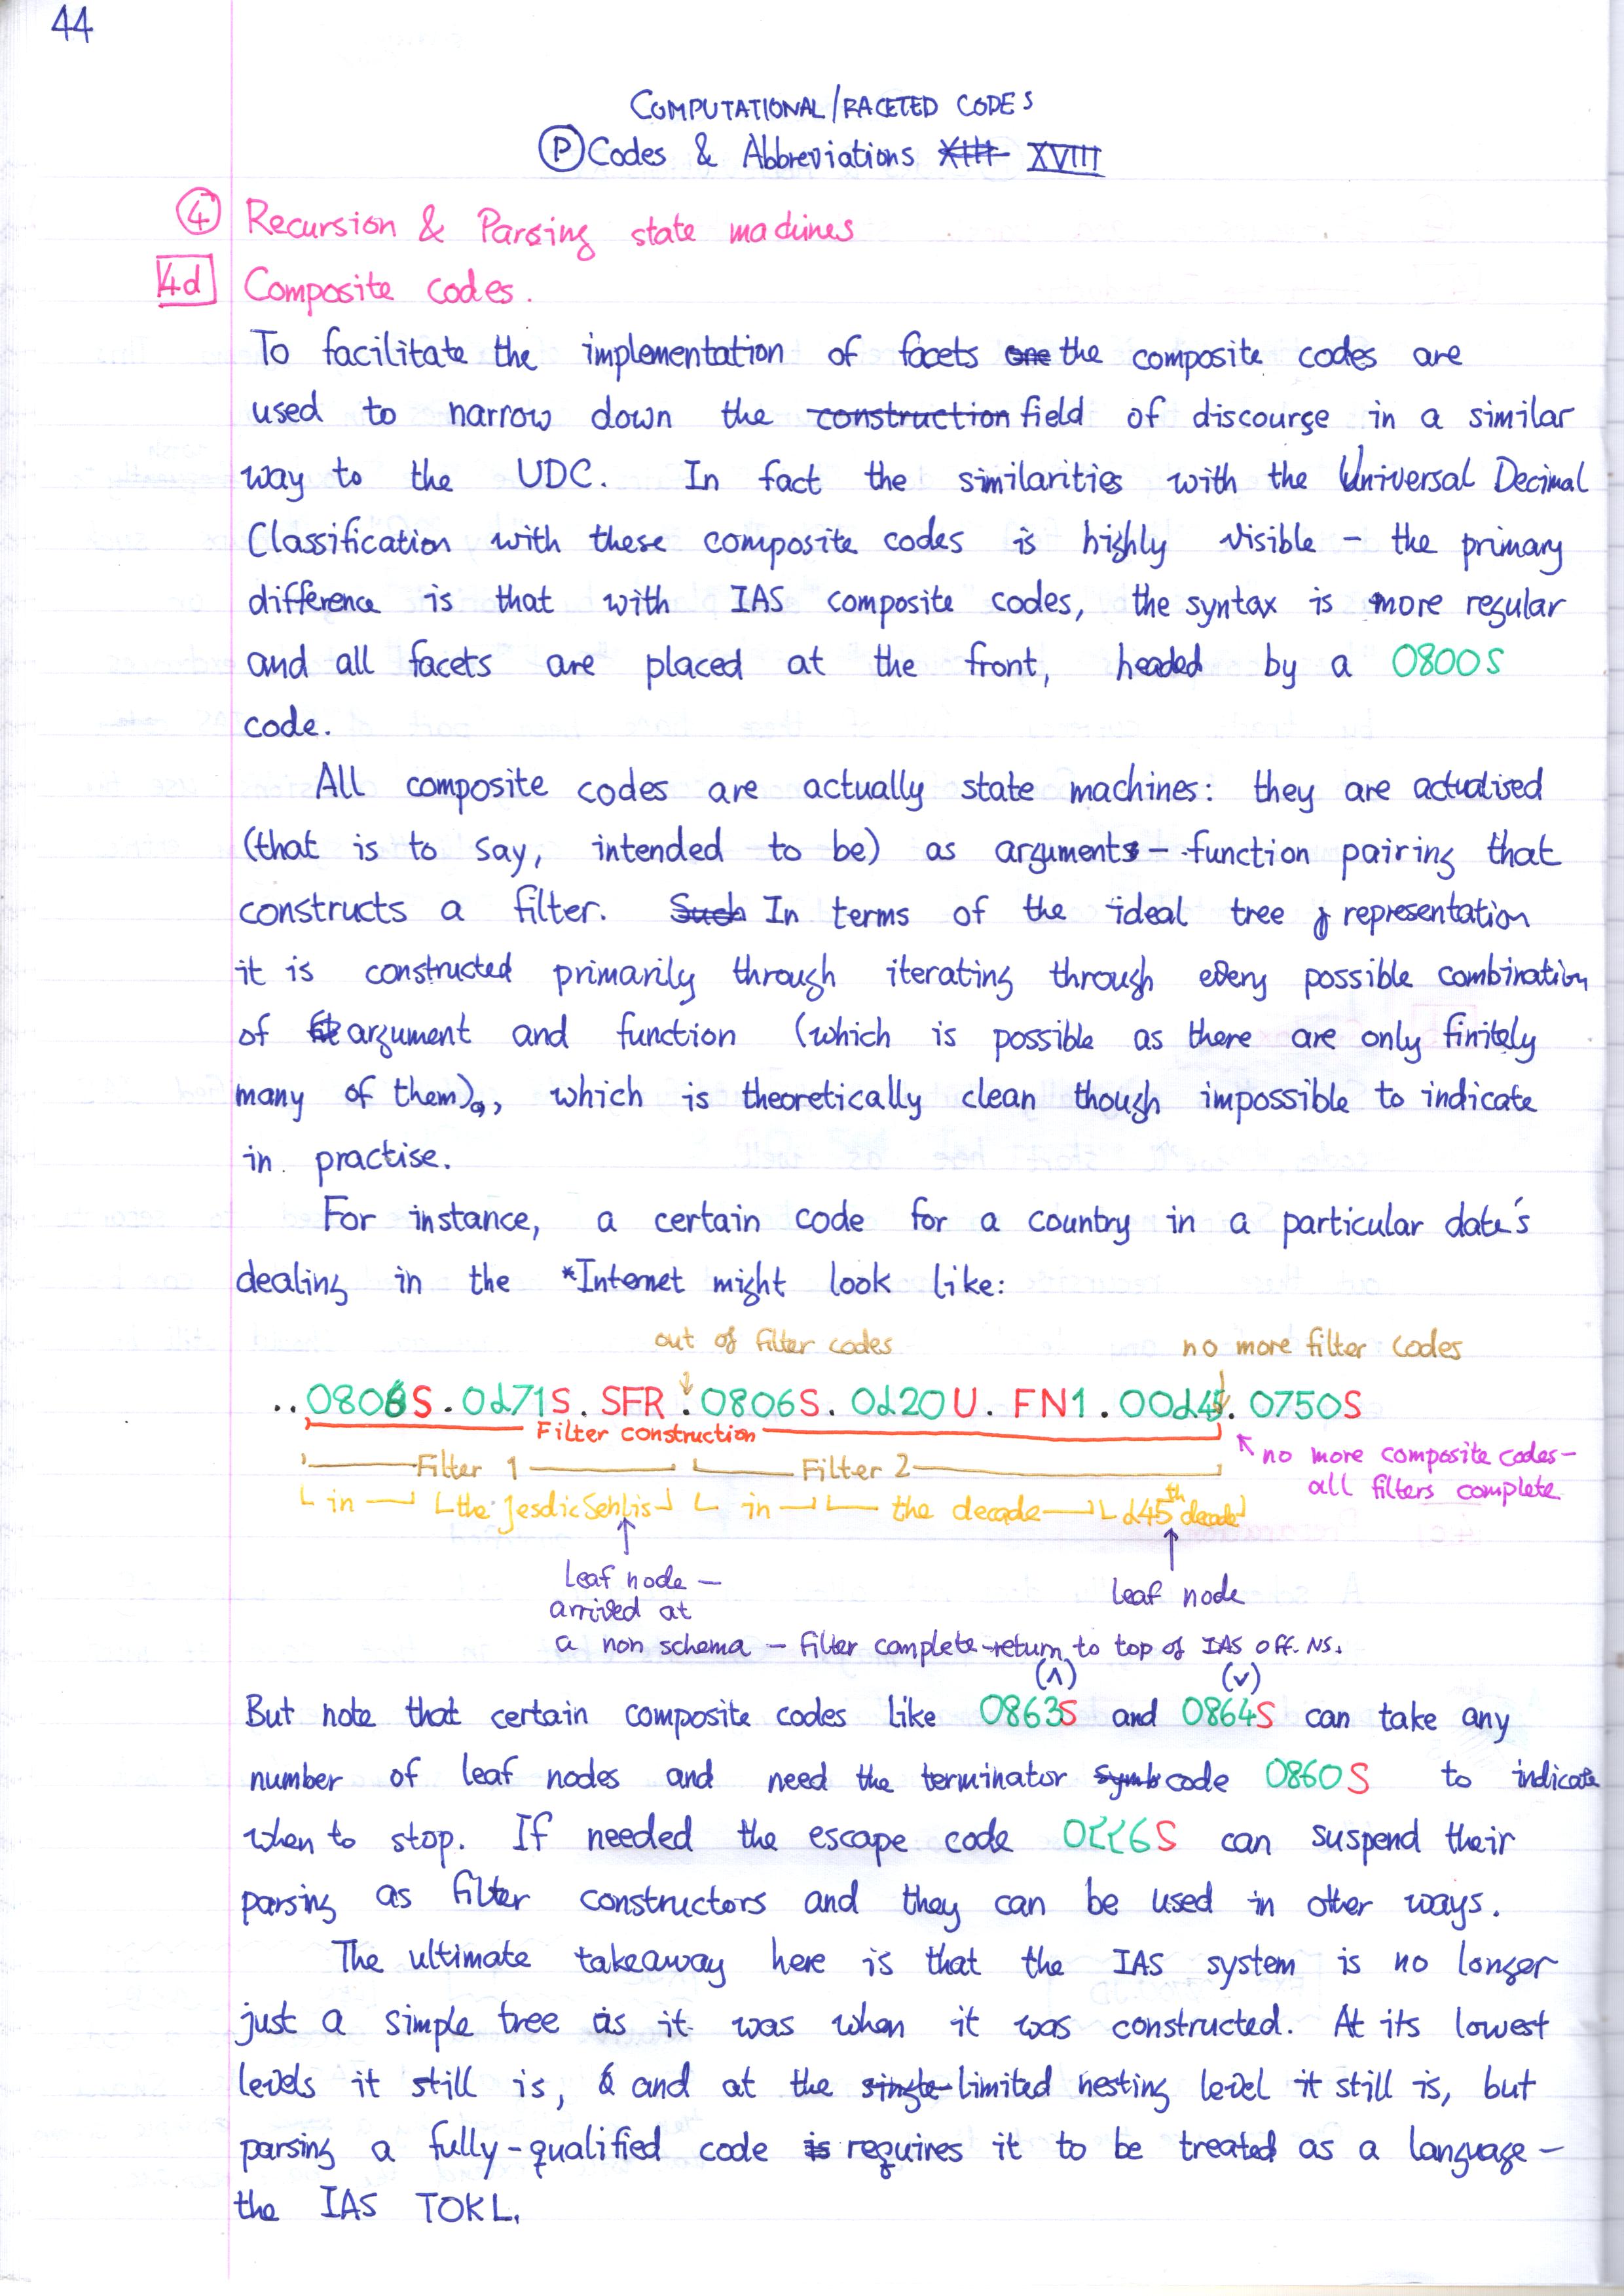 44
COMPUTATIONAL/FACETED CODES
Ⓟ Codes & Abbreviations XIII XVIII
④ Recursion & Parsing state machines
4d Composite codes.
To facilitate the implementation of facets one the composite codes are
used to narrow down the construction field of discourse in a similar
way to the UDC. In fact the similarities with the Universal Decimal
Classification with these composite codes is highly visible – the primary
difference is that with IAS composite codes, the syntax is more regular
and all facets are placed at the front, headed by a 0800S
code.
All composite codes are actually state machines: they are actualised
(that is to say, intended to be) as arguments – function pairing that
constructs a filter. Such In terms of the ideal tree representation
it is constructed primarily through iterating through every possible combination
of argument and function (which is possible as there are only finitely
many of them), which is theoretically clean though impossible to indicate
in practise.
For instance, a certain code for a country in a particular date's
dealing in the *Internet might look like:
out of filter codes no more filter codes
..0806S.0d71S.SFR.0806S.0d20U.FN1.00d45.0750S
Filter construction
no more composite codes –
all filters complete
Filter 1 Filter 2
in the Jesdic Sehlis in the decade d45th decade
leaf node –
arrived at
a non schema – filter complete – return to top of IAS off. NS.
leaf node
(∧) (∨)
But note that certain composite codes like 0863S and 0864S can take any
number of leaf nodes and need the terminator symb code 0860S to indicate
when to stop. If needed the escape code can suspend their
parsing as filter constructors and they can be used in other ways.
The ultimate takeaway here is that the IAS system is no longer
just a simple tree as it was when it was constructed. At its lowest
levels it still is, and at the single limited nesting level it still is, but
parsing a fully-qualified code is requires it to be treated as a language –
the IAS TOKL.